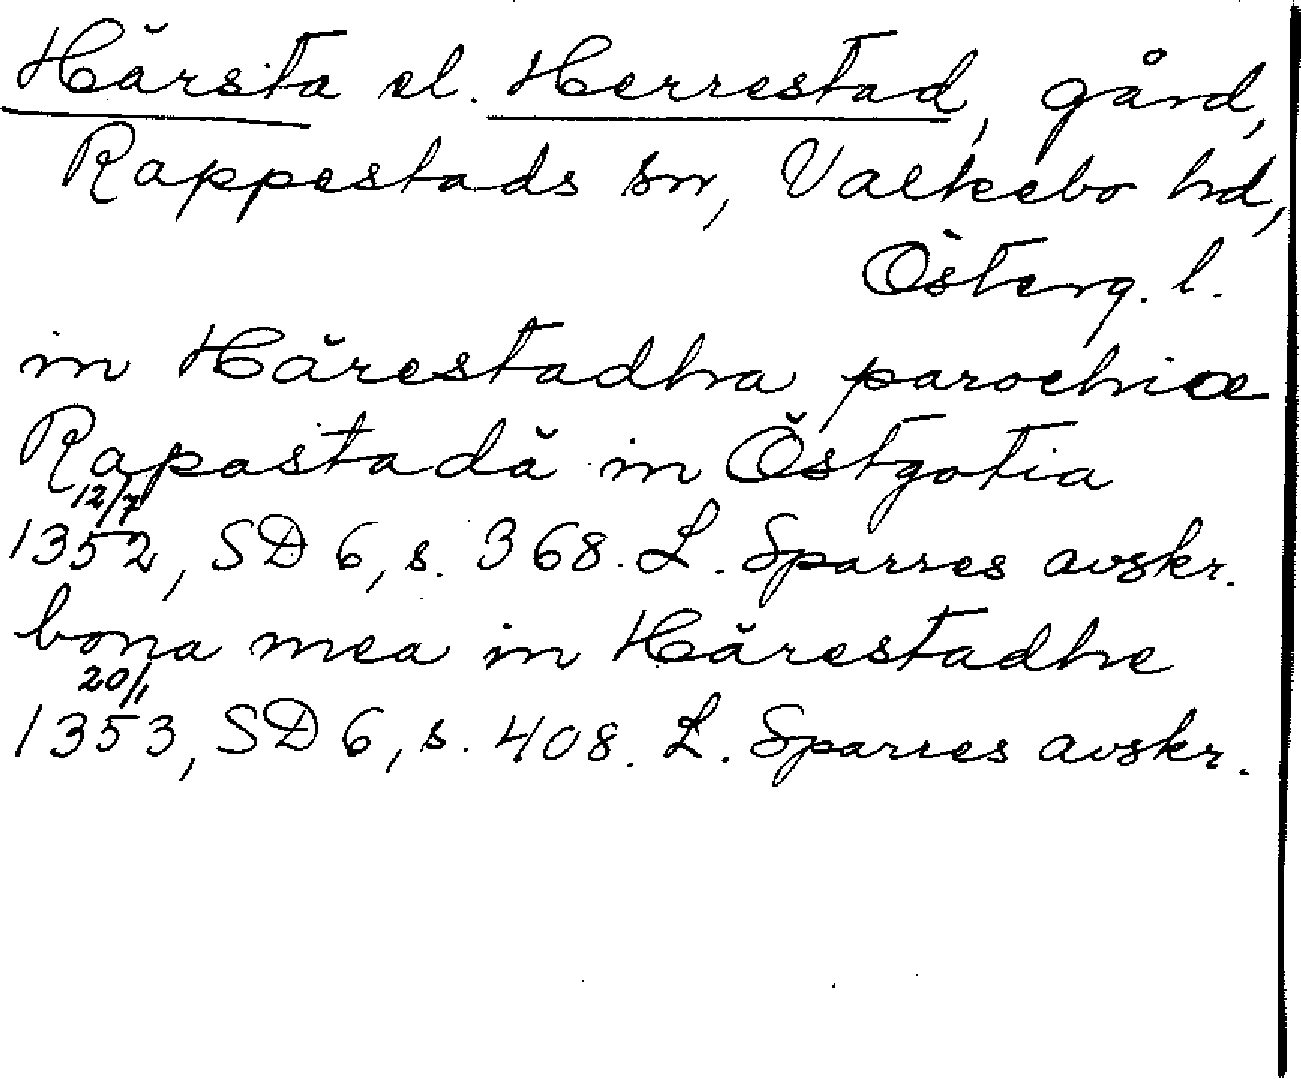 Härsta el. Herrestad, gård,
Rappestads sn, Valkebo hd,
Österg. l.
in Härestadha parochiæ
Rapastadä in Östgotia
12/7
1352, SD 6, s. 368. L. Sparres avskr.
bona mea in Härestadhe
20/1
1353, SD 6, s. 408. L. Sparres avskr.